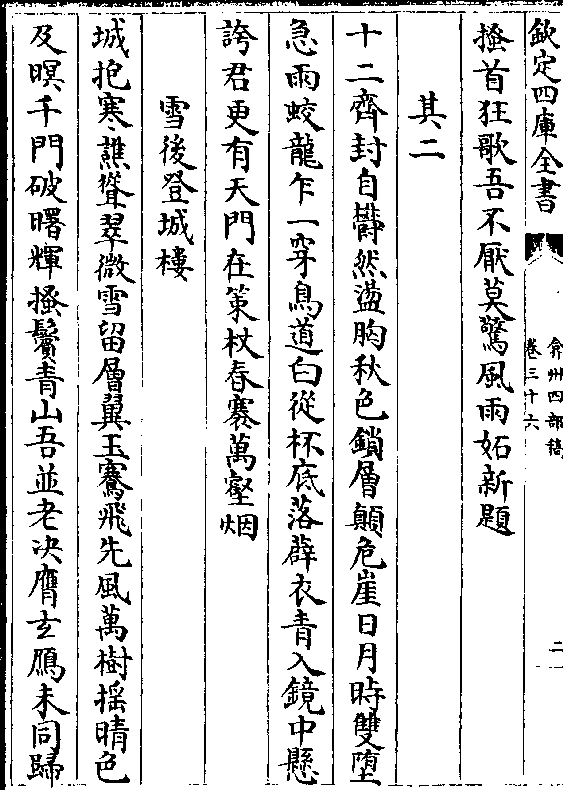 欽定四庫全書
弇州四部稿
卷三十六
二
搔首狂歌吾不厭莫驚風雨妬新題
其二
十二齊封自鬱然盪胸秋色鎖層顛危崖日月時雙墮
急雨蛟龍乍一穿鳥道白從杯底落薜衣青入鏡中懸
誇君更有天門在策杖春褰萬壑烟
雪後登城樓
城抱寒譙聳翠微雪留層翼玉騫飛先風萬樹搖晴色
及暝千門破曙輝搔鬢青山吾並老決膺玄鴈未同歸